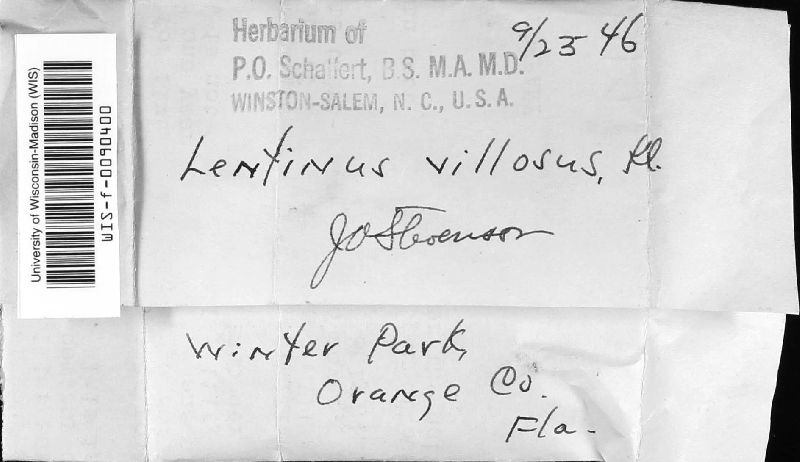 University of Wisconsin-Madison (WIS)
WIS-f-0090400
Herbarium of
P.O. Schallert, B.S. M.A. M.D.
WINSTON-SALEM, N. C., U.S.A.
9/25 46
Lentinus villosus, Kl.
J O Stevenson
Winter Park,
Orange Co.
Fla.